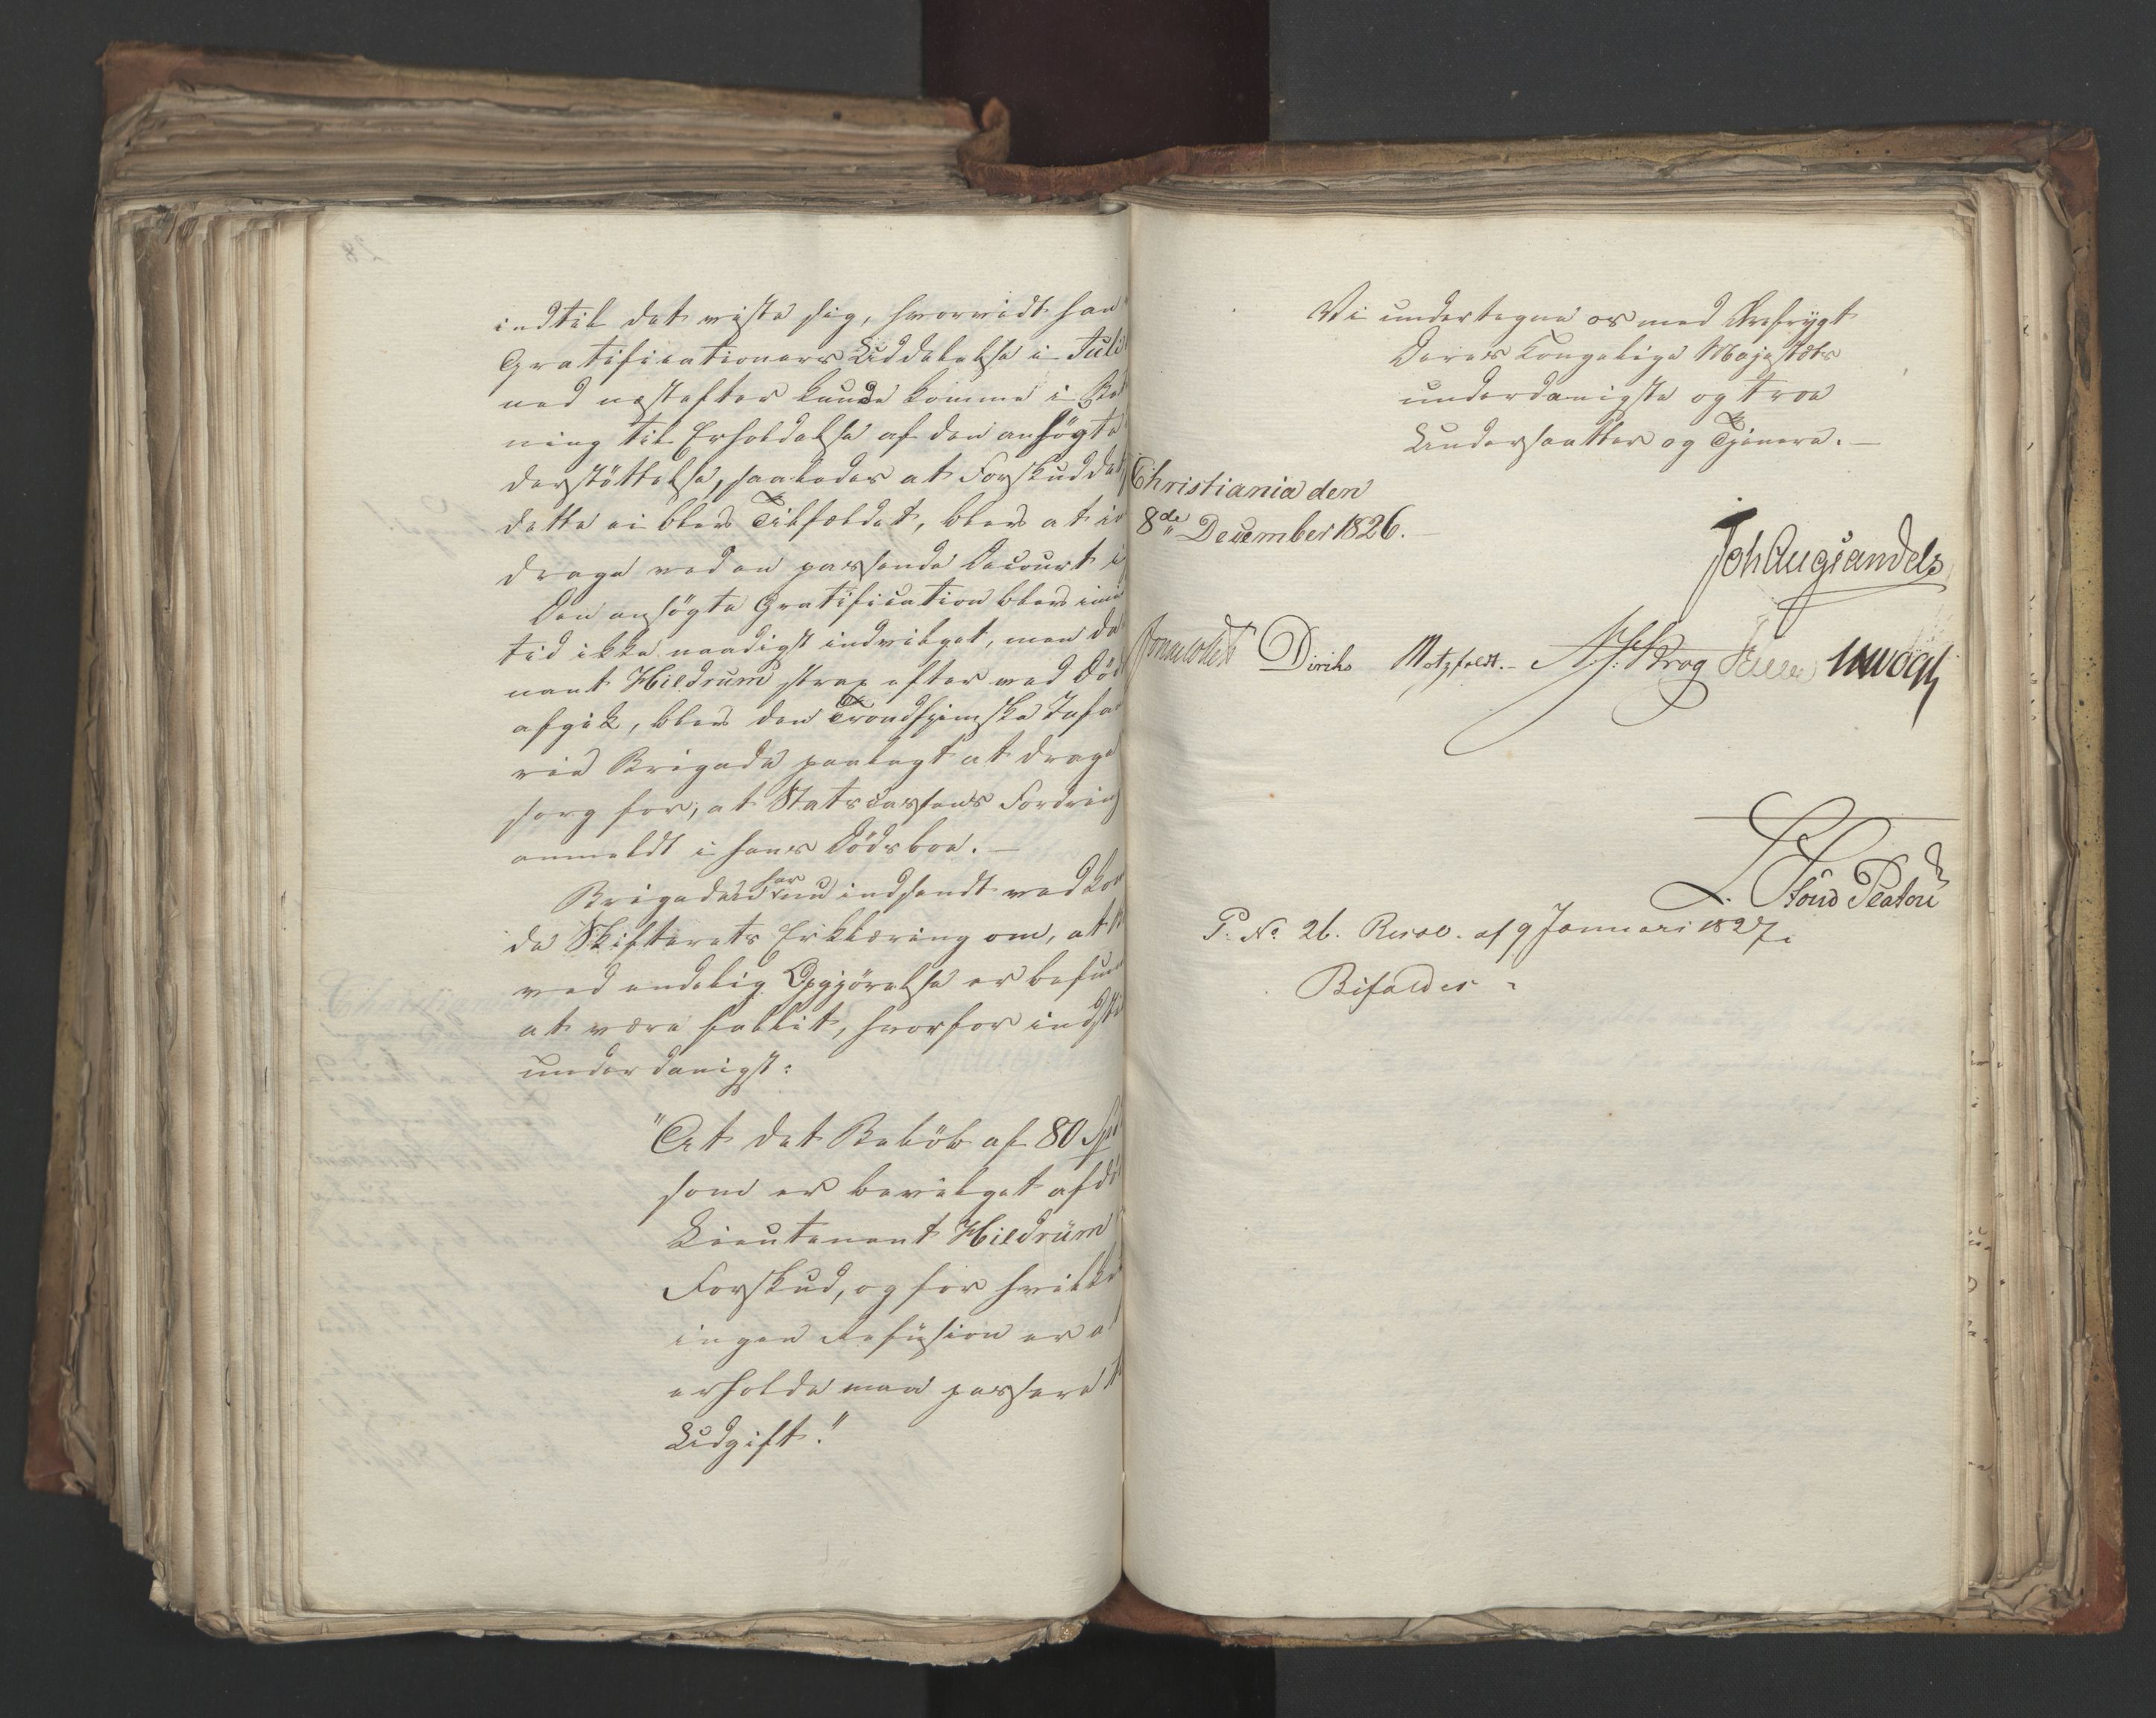 indtil det viste sig, hvorvidt han
Gratificationers Uddelelse i Juli
ned næstefter kunde komme i Be
ning til Erholdelse af den ansøgte
derstøttelse, saaledes at Forskuddet,
dette ei blev Tilfældet, blev at in
drage ved en passende Decourt i
Den ansøgte Gratification blev imid
tid ikke naadigst indvilget, men da
nant Hildrum strax efter ved Død
afgik, blev den Trondhjemske Infan
rie Brigade paalagt at drage
sorg for, at Statscassens Fordring
anmeldt i hans Dødsboe. —
Brigaden har nu indsendt vedkom
de Skifterets Erklæring om, at
ved endelig Opgjørelse er befun
at være fallit, hvorfor indsti
underdanigst:
"At det Beløb af 80 Spd
som er bevilget afdø
Lieutenant Hildrum
Forskud, og for hvilke
ingen Refusion er at
erholde maa passere til
Udgift."
Vi undertegne os med Ærefrygt
Deres Kongelige Majestæts
underdanigste og troe
Undersaatter og Tjenere. —
Christiania den
8de December 1826.
Joh Aug Sandels
Sommerhielm Diriks Motzfeldt. Krog Vogt
P. No 26. Resol. af 9 Januari 1827.
Bifaldes